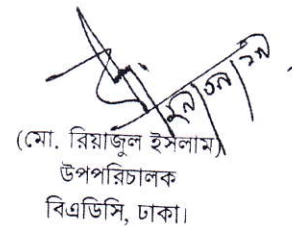 (মো. রিয়াজুল ইসলাম)
উপপরিচালক
বিএডিসি, ঢাকা।